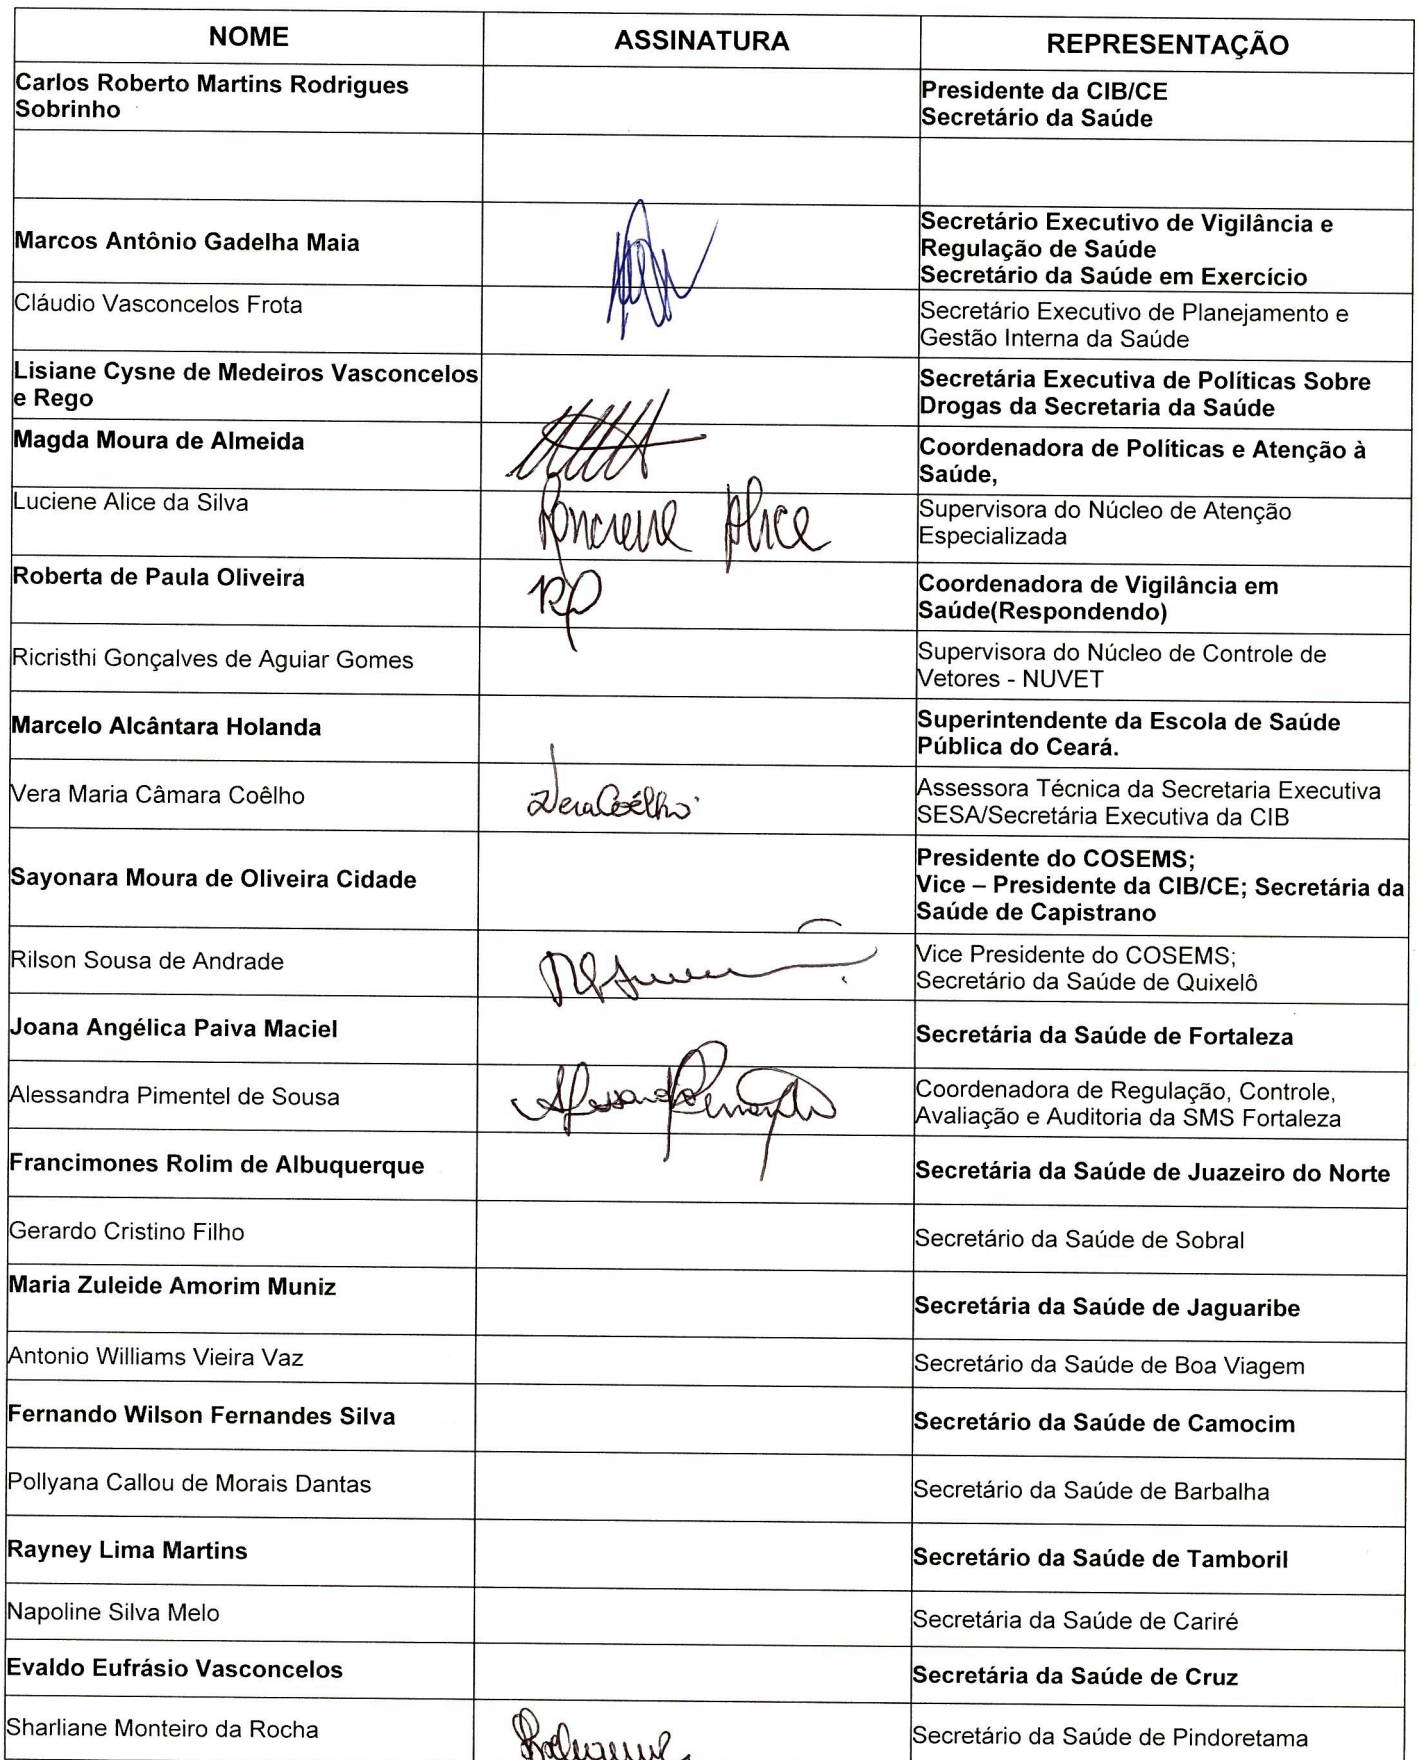 NOME ASSINATURA REPRESENTAÇÃO
Carlos Roberto Martins Rodrigues
Sobrinho
Presidente da CIB/CE
Secretário da Saúde
Marcos Antônio Gadelha Maia
Secretário Executivo de Vigilância e
Regulação de Saúde
Secretário da Saúde em Exercício
Cláudio Vasconcelos Frota
Secretário Executivo de Planejamento e
Gestão Interna da Saúde
Lisiane Cysne de Medeiros Vasconcelos
e Rego
Secretária Executiva de Políticas Sobre
Drogas da Secretaria da Saúde
Magda Moura de Almeida
Coordenadora de Políticas e Atenção à
Saúde,
Luciene Alice da Silva
Luciene Alice
Supervisora do Núcleo de Atenção
Especializada
Roberta de Paula Oliveira
RP
Coordenadora de Vigilância em
Saúde(Respondendo)
Ricristhi Gonçalves de Aguiar Gomes
Supervisora do Núcleo de Controle de
Vetores - NUVET
Marcelo Alcântara Holanda
Superintendente da Escola de Saúde
Pública do Ceará.
Vera Maria Câmara Coêlho
Vera Coêlho
Assessora Técnica da Secretaria Executiva
SESA/Secretária Executiva da CIB
Sayonara Moura de Oliveira Cidade
Presidente do COSEMS;
Vice – Presidente da CIB/CE; Secretária da
Saúde de Capistrano
Rilson Sousa de Andrade
Vice Presidente do COSEMS;
Secretário da Saúde de Quixelô
Joana Angélica Paiva Maciel
Secretária da Saúde de Fortaleza
Alessandra Pimentel de Sousa
Alessandra Pimentel
Coordenadora de Regulação, Controle,
Avaliação e Auditoria da SMS Fortaleza
Francimones Rolim de Albuquerque
Secretária da Saúde de Juazeiro do Norte
Gerardo Cristino Filho
Secretário da Saúde de Sobral
Maria Zuleide Amorim Muniz
Secretária da Saúde de Jaguaribe
Antonio Williams Vieira Vaz
Secretário da Saúde de Boa Viagem
Fernando Wilson Fernandes Silva
Secretário da Saúde de Camocim
Pollyana Callou de Morais Dantas
Secretário da Saúde de Barbalha
Rayney Lima Martins
Secretário da Saúde de Tamboril
Napoline Silva Melo
Secretária da Saúde de Cariré
Evaldo Eufrásio Vasconcelos
Secretária da Saúde de Cruz
Sharliane Monteiro da Rocha
Secretário da Saúde de Pindoretama